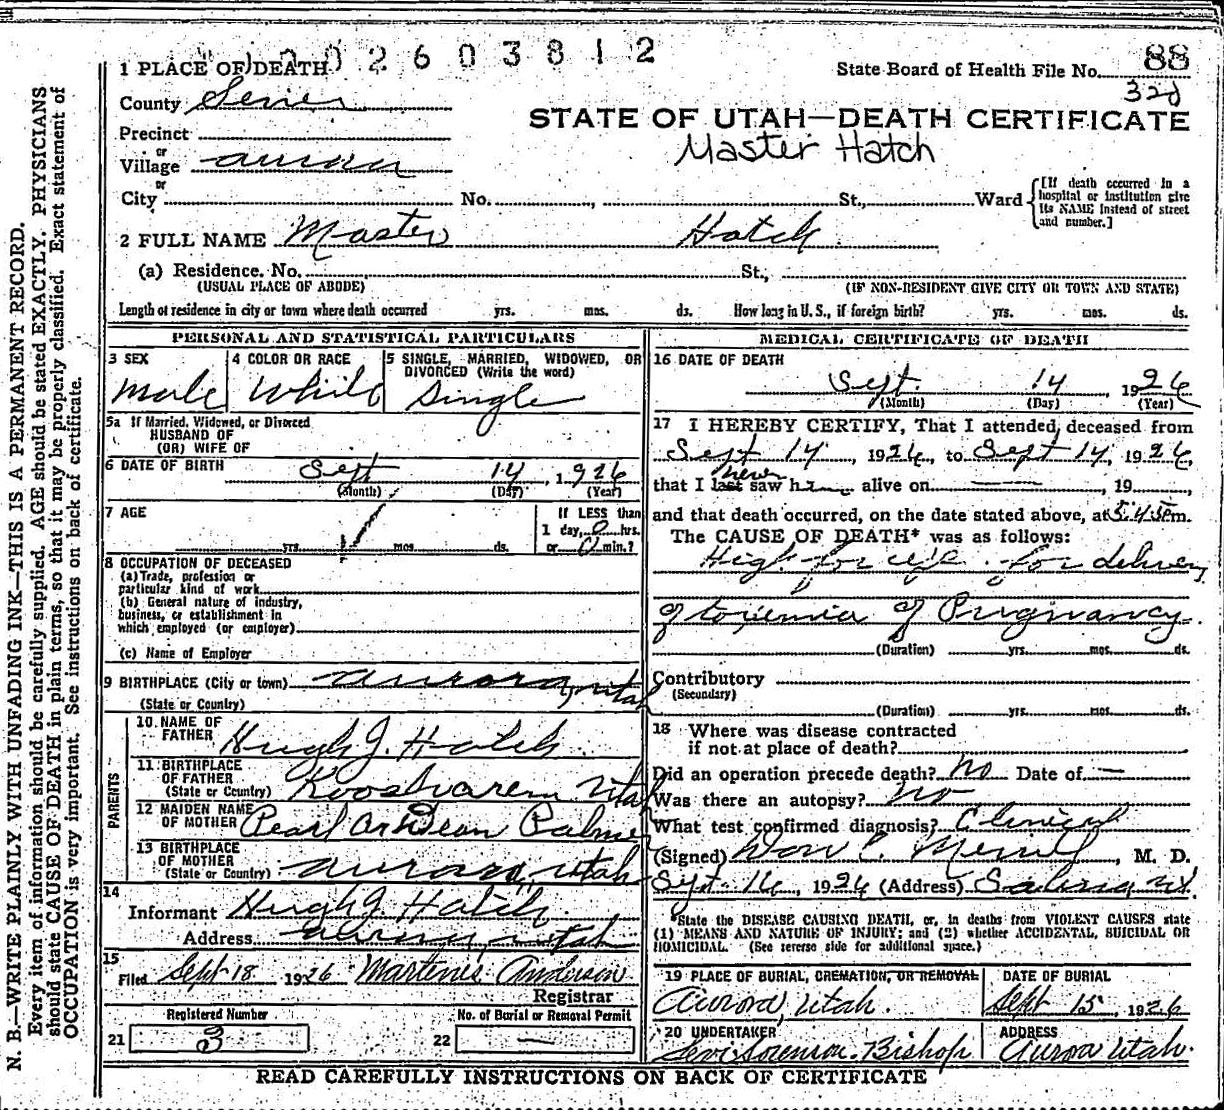 2 6 0 3 8 1 2
1 PLACE OF DEATH
State Board of Health File No. 88
County Sevier
32d
STATE OF UTAH—DEATH CERTIFICATE
Precinct
Master Hatch
or
Village Aurora
or
City No. , St., Ward [If death occurred in a hospital or institution give its NAME instead of street and number.]
2 FULL NAME Master Hatch
(a) Residence. No. St.,
(USUAL PLACE OF ABODE) (IF NON-RESIDENT GIVE CITY OR TOWN AND STATE)
Length of residence in city or town where death occurred yrs. mos. ds. How long in U. S., if foreign birth? yrs. mos. ds.
PERSONAL AND STATISTICAL PARTICULARS
3 SEX 4 COLOR OR RACE 5 SINGLE, MARRIED, WIDOWED, OR DIVORCED (Write the word)
Male White Single
5a If Married, Widowed, or Divorced
HUSBAND OF
(OR) WIFE OF
6 DATE OF BIRTH Sept 14, 1926
(Month) (Day) (Year)
7 AGE yrs. mos. ds.
If LESS than
1 day, 0 hrs.
or 0 min.?
8 OCCUPATION OF DECEASED
(a) Trade, profession or
particular kind of work
(b) General nature of industry,
business, or establishment in
which employed (or employer)
(c) Name of Employer
9 BIRTHPLACE (City or town) Aurora, Utah
(State or Country)
PARENTS
10 NAME OF FATHER Hugh J. Hatch
11 BIRTHPLACE OF FATHER Koosharem Utah
(State or Country)
12 MAIDEN NAME OF MOTHER Pearl Palmer
13 BIRTHPLACE OF MOTHER Aurora, Utah
(State or Country)
14
Informant Hugh J. Hatch
Address Aurora, Utah
15
Filed Sept 18 1926 Martenus Anderson
Registrar
Registered Number No. of Burial or Removal Permit
21 3 22 —
MEDICAL CERTIFICATE OF DEATH
16 DATE OF DEATH
Sept 14 1926
(Month) (Day) (Year)
17 I HEREBY CERTIFY, That I attended deceased from
Sept 14, 1926, to Sept 14, 1926,
never
that I last saw him alive on , 19 ,
and that death occurred, on the date stated above, at 5:45 Pm.
The CAUSE OF DEATH* was as follows:
High forceps for delivery
of toxemia of Pregnancy.
(Duration) yrs. mos. ds.
Contributory
(Secondary)
(Duration) yrs. mos. ds.
18 Where was disease contracted
if not at place of death?
Did an operation precede death? No Date of —
Was there an autopsy? No
What test confirmed diagnosis? Clinical
(Signed) Don C. Merrill, M. D.
Sept. 16, 1926 (Address) Salina Ut
*State the DISEASE CAUSING DEATH, or, in deaths from VIOLENT CAUSES state
(1) MEANS AND NATURE OF INJURY; and (2) whether ACCIDENTAL, SUICIDAL OR
HOMICIDAL. (See reverse side for additional space.)
19 PLACE OF BURIAL, CREMATION, OR REMOVAL DATE OF BURIAL
Aurora, Utah. Sept 15, 1926
20 UNDERTAKER ADDRESS
Levi Sorenson. Bishop Aurora Utah.
READ CAREFULLY INSTRUCTIONS ON BACK OF CERTIFICATE
N. B.—WRITE PLAINLY WITH UNFADING INK—THIS IS A PERMANENT RECORD.
Every item of information should be carefully supplied. AGE should be stated EXACTLY. PHYSICIANS
should state CAUSE OF DEATH in plain terms, so that it may be properly classified. Exact statement of
OCCUPATION is very important. See instructions on back of certificate.